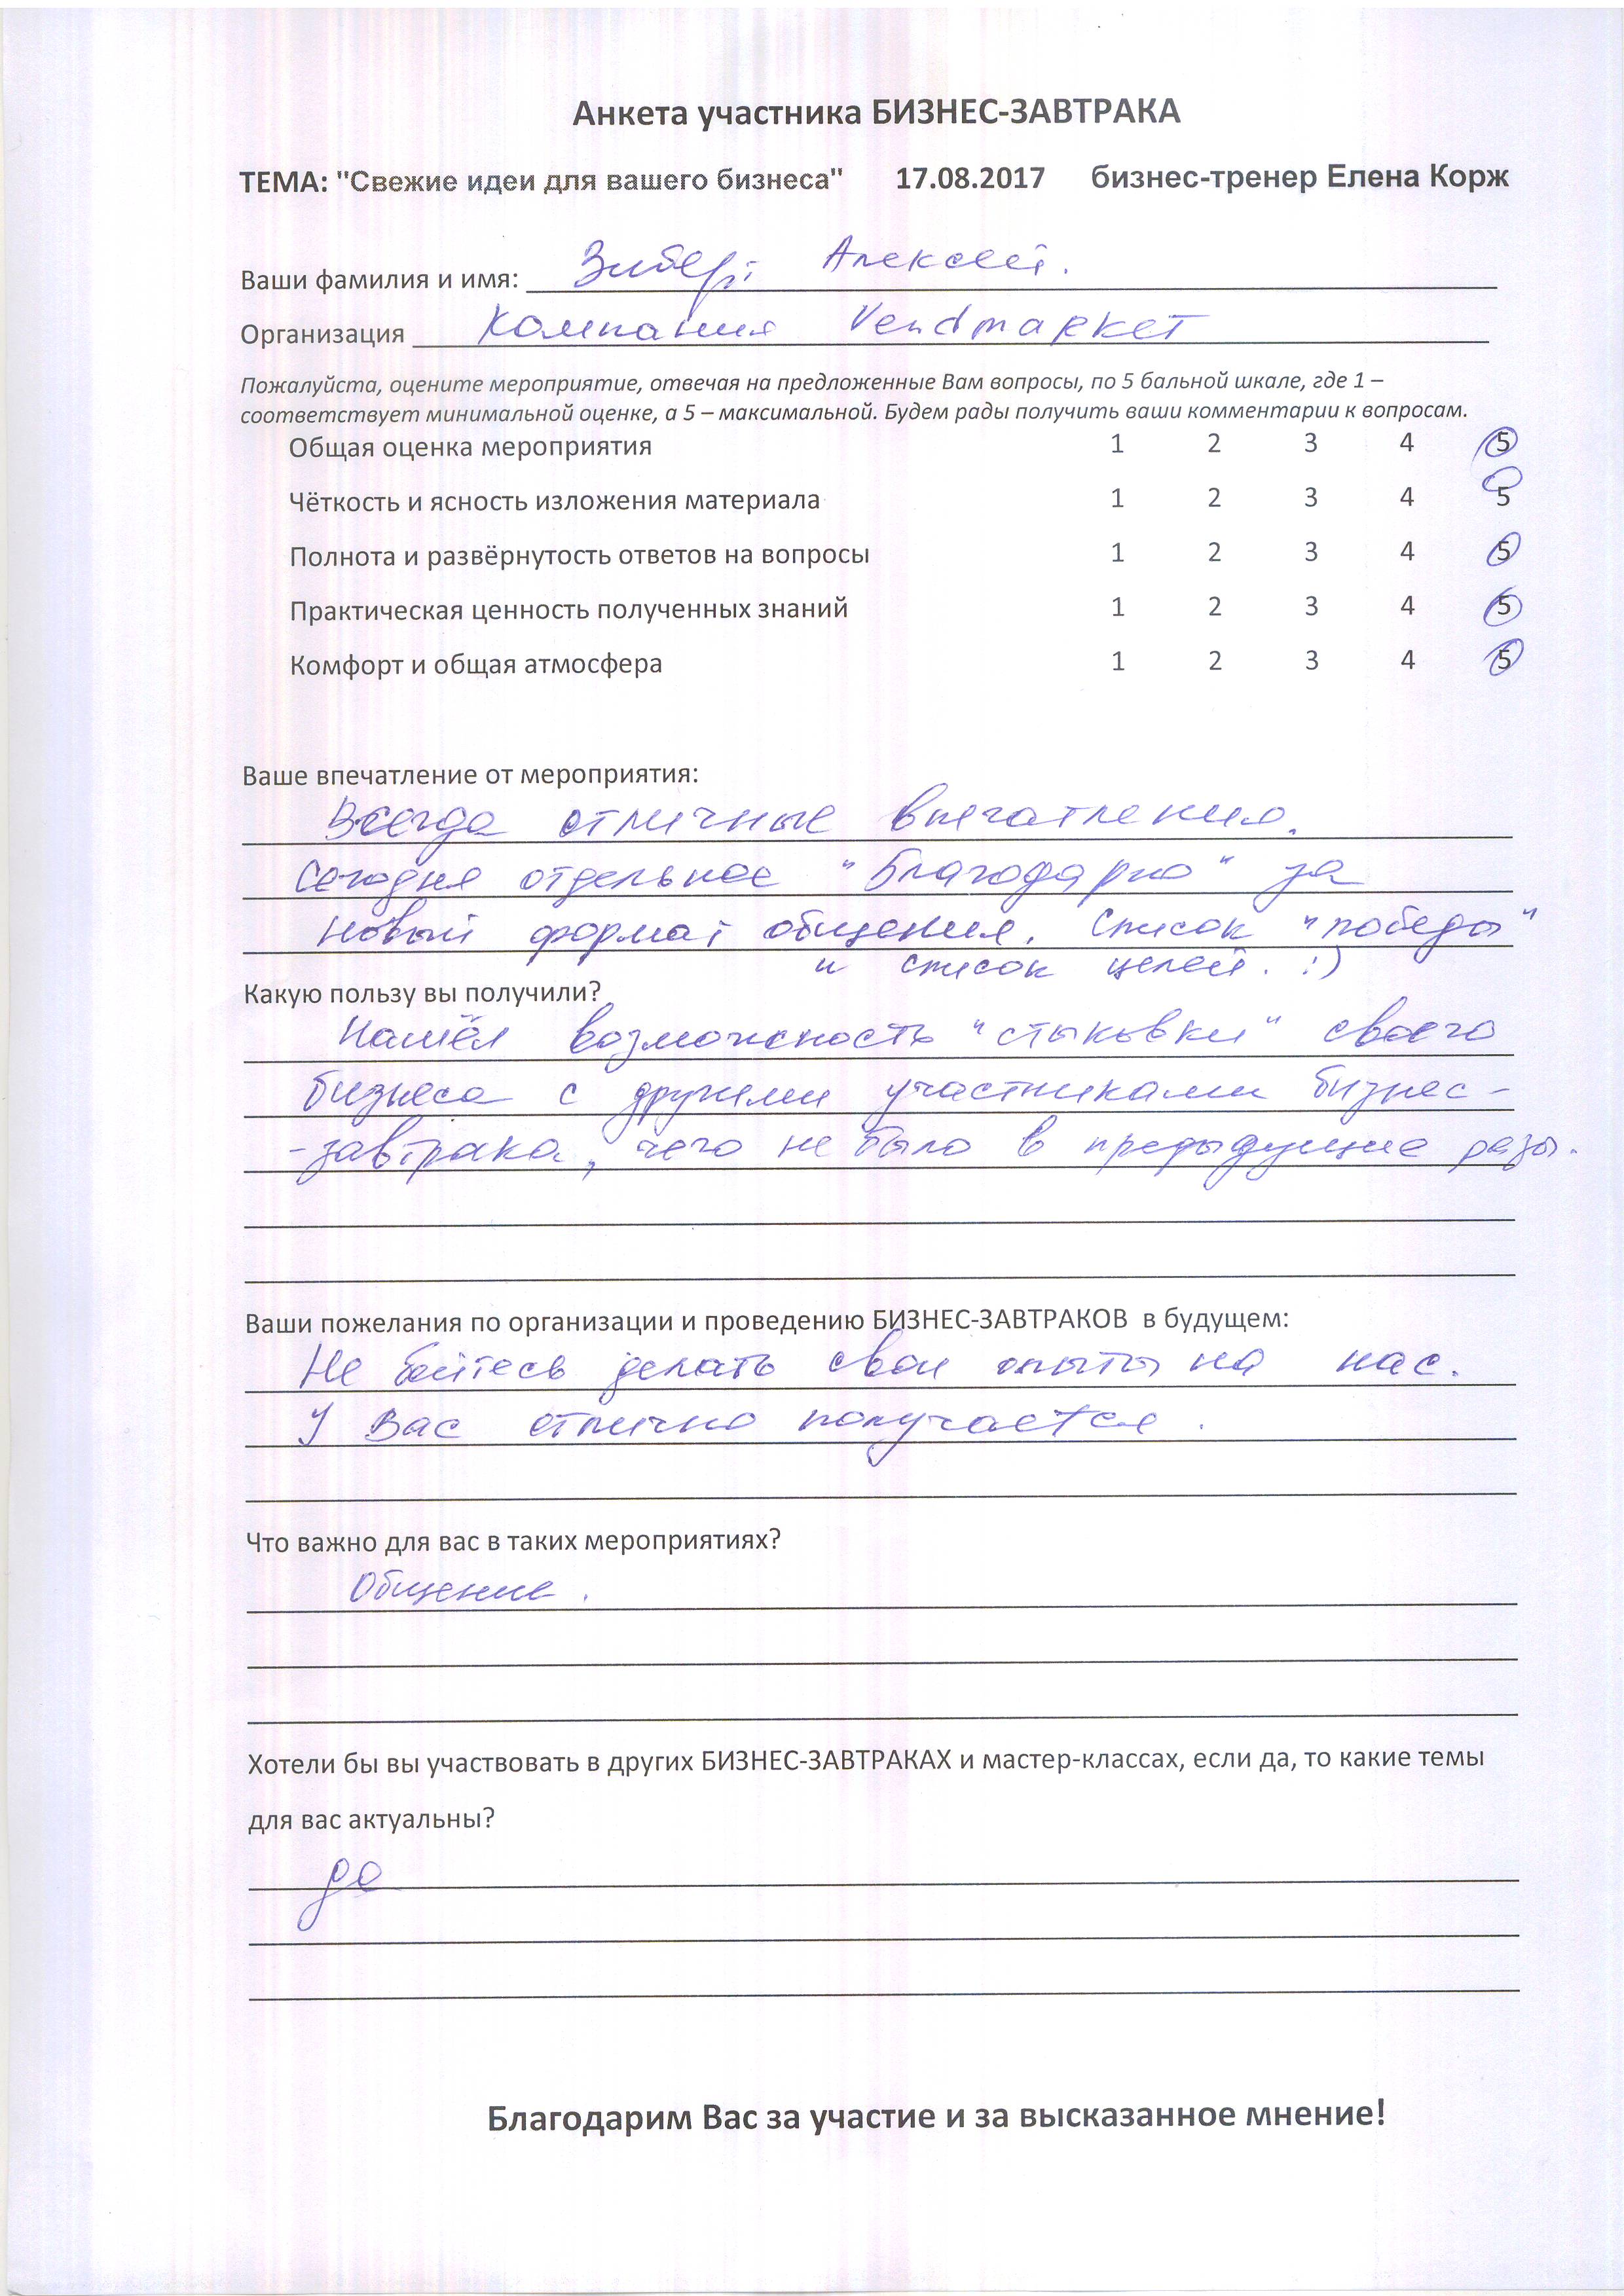 Анкета участника БИЗНЕС-ЗАВТРАКА
ТЕМА: "Свежие идеи для вашего бизнеса" 17.08.2017 бизнес-тренер Елена Корж
Ваши фамилия и имя: Зиберт Алексей.
Организация Компания Vendmaркет
Пожалуйста, оцените мероприятие, отвечая на предложенные Вам вопросы, по 5 бальной шкале, где 1 –
соответствует минимальной оценке, а 5 – максимальной. Будем рады получить ваши комментарии к вопросам.
Общая оценка мероприятия 1 2 3 4 5
Чёткость и ясность изложения материала 1 2 3 4 5
Полнота и развёрнутость ответов на вопросы 1 2 3 4 5
Практическая ценность полученных знаний 1 2 3 4 5
Комфорт и общая атмосфера 1 2 3 4 5
Ваше впечатление от мероприятия:
Всегда отличные впечатления.
Сегодня отдельное "Благодарю" за
новый формат общения. Список "победы"
и список целей. :)
Какую пользу вы получили?
Нашёл возможность "стыковки" своего
бизнеса с другими участниками бизнес-
-завтрака, чего не было в предыдущие разы.
Ваши пожелания по организации и проведению БИЗНЕС-ЗАВТРАКОВ в будущем:
Не бойтесь делать свои опыты на нас.
У Вас отлично получается.
Что важно для вас в таких мероприятиях?
Общение.
Хотели бы вы участвовать в других БИЗНЕС-ЗАВТРАКАХ и мастер-классах, если да, то какие темы
для вас актуальны?
да
Благодарим Вас за участие и за высказанное мнение!